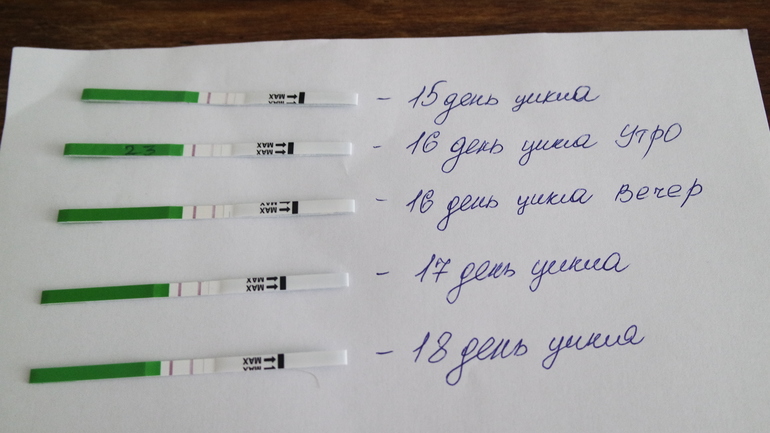 MAX
- 15 день цикла
23
MAX
- 16 день цикла Утро
MAX
- 16 день цикла Вечер
MAX
- 17 день цикла
MAX
- 18 день цикла